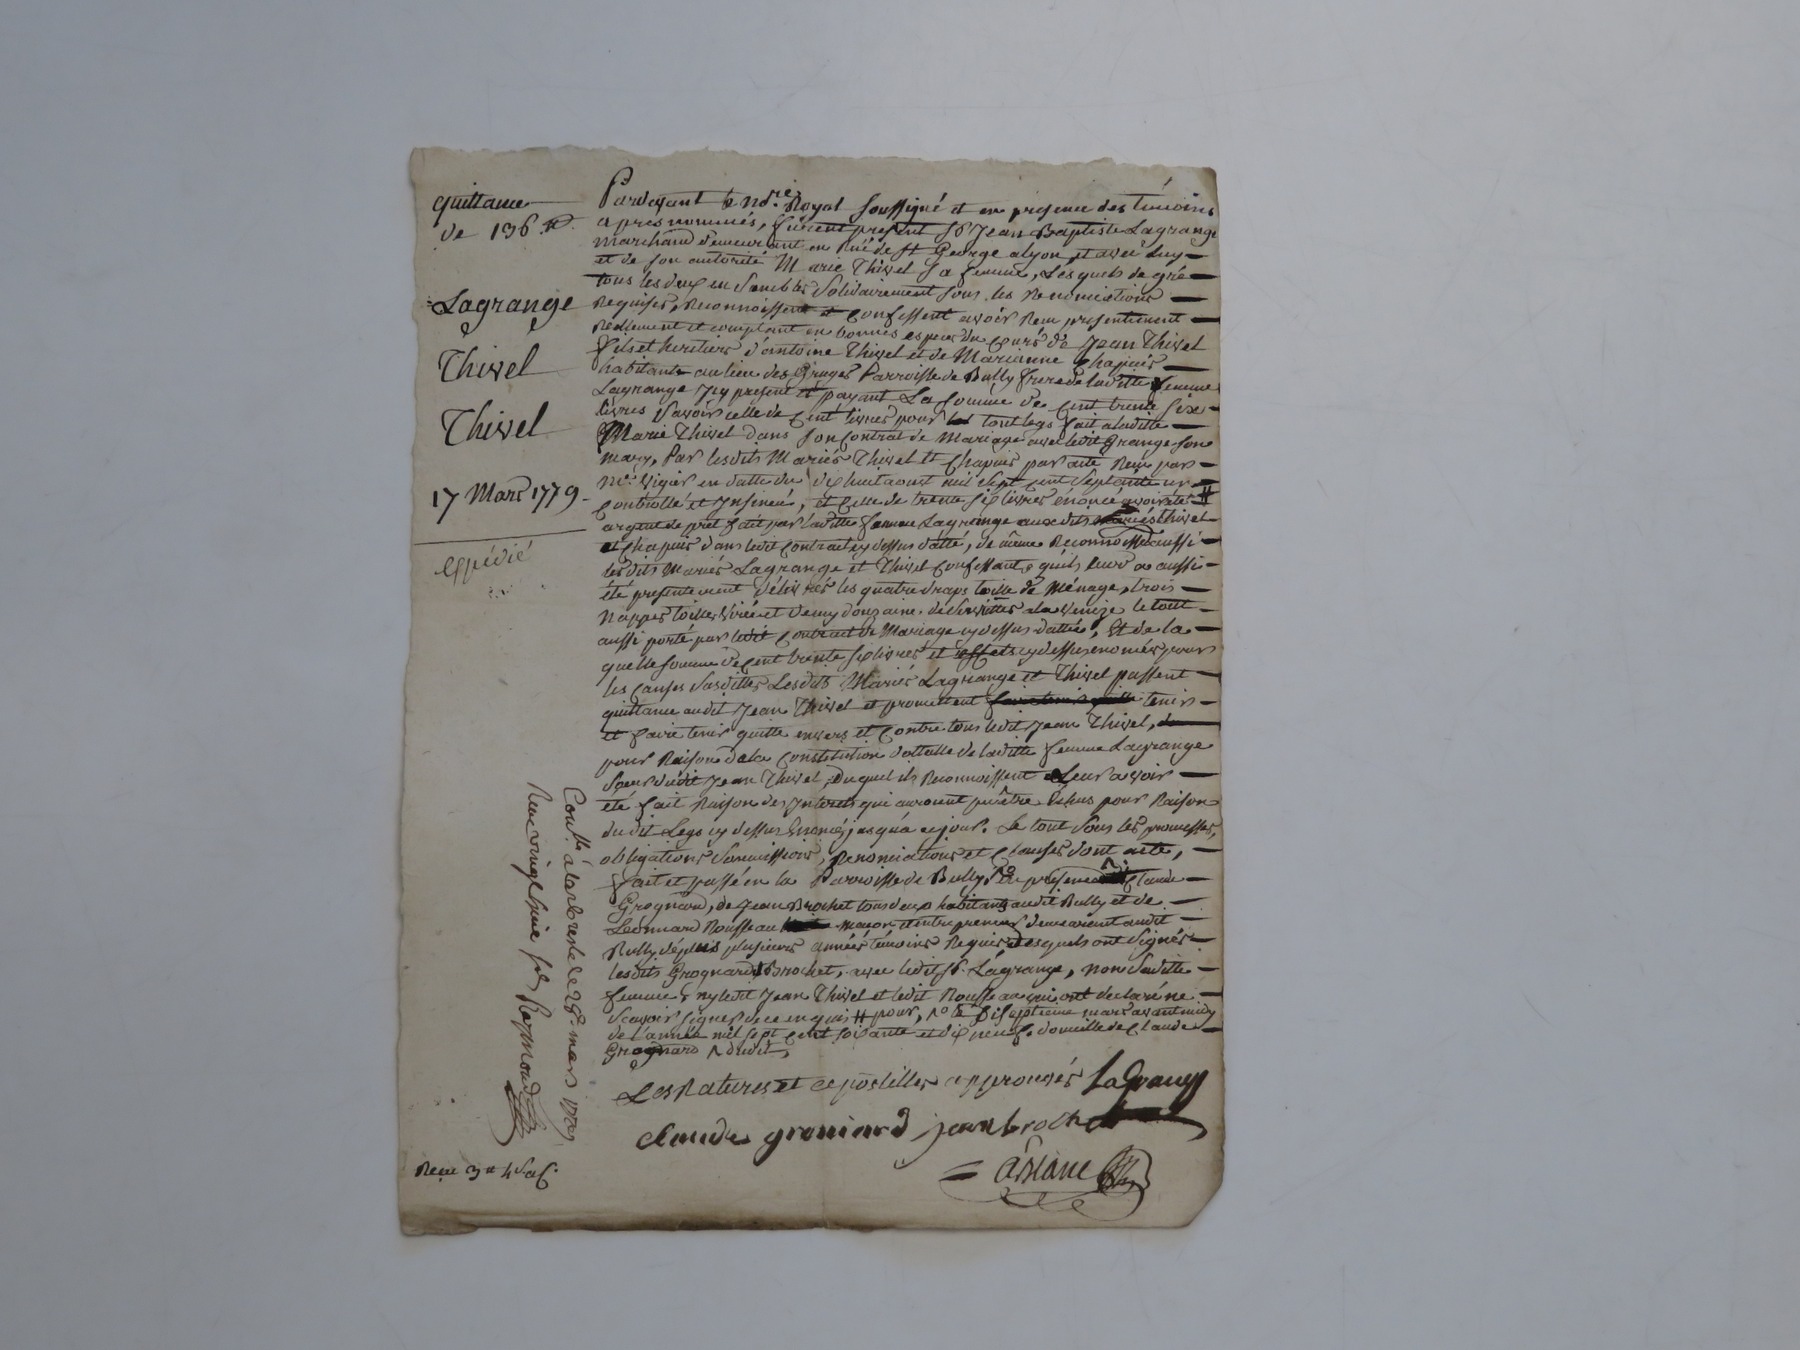 quittance
de 136 ₶
Lagrange
Thivel
Thivel
17 Mars 1779
Expédié
Pardevant le no.re Royal soussigné et en presence des temoins
apres nommés, furent present sr Jean Baptiste Lagrange
marchand demeurant en Ruë de st George a lyon, et avec luy
et de son autorité Marie Thivel sa femme, Lesquels de gré
tous les deux ensembles solidairement sous les Renonciations
Requises, Reconnoissent et confessent avoir Reçu presentement
Reellement et comptant en bonnes especes du cours de Jean Thivel
fils et heritier d'antoine Thivel et de Marianne Chapuis
habitants au lieu des Gruges Parroisse de Bully frere de laditte femme
Lagrange Icy present et payant La somme de cent trente six
livres savoir celle de Cent livres pour le tout legs fait a laditte
Marie Thivel dans son Contrat de Mariage avec ledit Grange son
mary, Par lesdits Mariés Thivel et Chapuis par acte Reçu par
me. Vigier en datte du dixhuit aout mil sept cent septante un
controllé et Insinué, et Celle de trente six livres énoncé avoir été #
argent de prêt fait par laditte femme Lagrange auxdits Mariés Thivel
et Chapuis dans ledit Contrait cy dessus datté, de même Reconnoissent aussi
lesdits Mariés Lagrange et Thivel Confessants quils leurs a aussi
été presentement délivrés les quatre draps toille de Ménage, trois
Nappes toilles et demy douzaine de serviettes a la venize le tout
aussi porté par ledit Contrait de Mariage cy dessus dattée, Et de la
quelle somme de cent trente six livres et effets cy dessus enoncés pour
les causes susdittes Lesdits Mariés Lagrange et Thivel passent
quittance audit Jean Thivel et promettent tenir
et faire tenir quitte envers et Contre tous ledit Jean Thivel,
pour Raison de la Constitution dottalle de laditte femme Lagrange
soeur dudit Jean Thivel, Duquel ils Reconnoissent Leur avoir
été fait Raison des Interets qui auroient pu être Echus pour Raison
dudit Legs cy dessus Enoncé jusqu'a ce jour. Le tout sous les promesses,
obligations soumissions, Renonciations et Clauses dont acte,
fait et passé en la Parroisse de Bully en presence Claude
Grognard, de Jean Brochet tous deux habitants audit Bully et de
Leonnard Rousseau maçon et entrepreneur demeurant audit
Bully depuis plusieurs années témoins Requis desquels ont signés
lesdits Grognard Brochet, avec ledit sr. Lagrange, non laditte
femme, ny ledit Jean Thivel et ledit Rousseau qui ont declaré ne
scavoir signer de ce enquis # pour, le dixseptieme mars avant midy
de l'année mil sept cent soixante et dix neuf. domicille de Claude
Grognard dudit,
Les Ratures et apostilles approuvés La Grange
claude groniard jean brochet
Contllé à larbresle le 28e. mars 1779
Reçu vingt une s. Raymond
Reçu 3 ₶ 4 s.